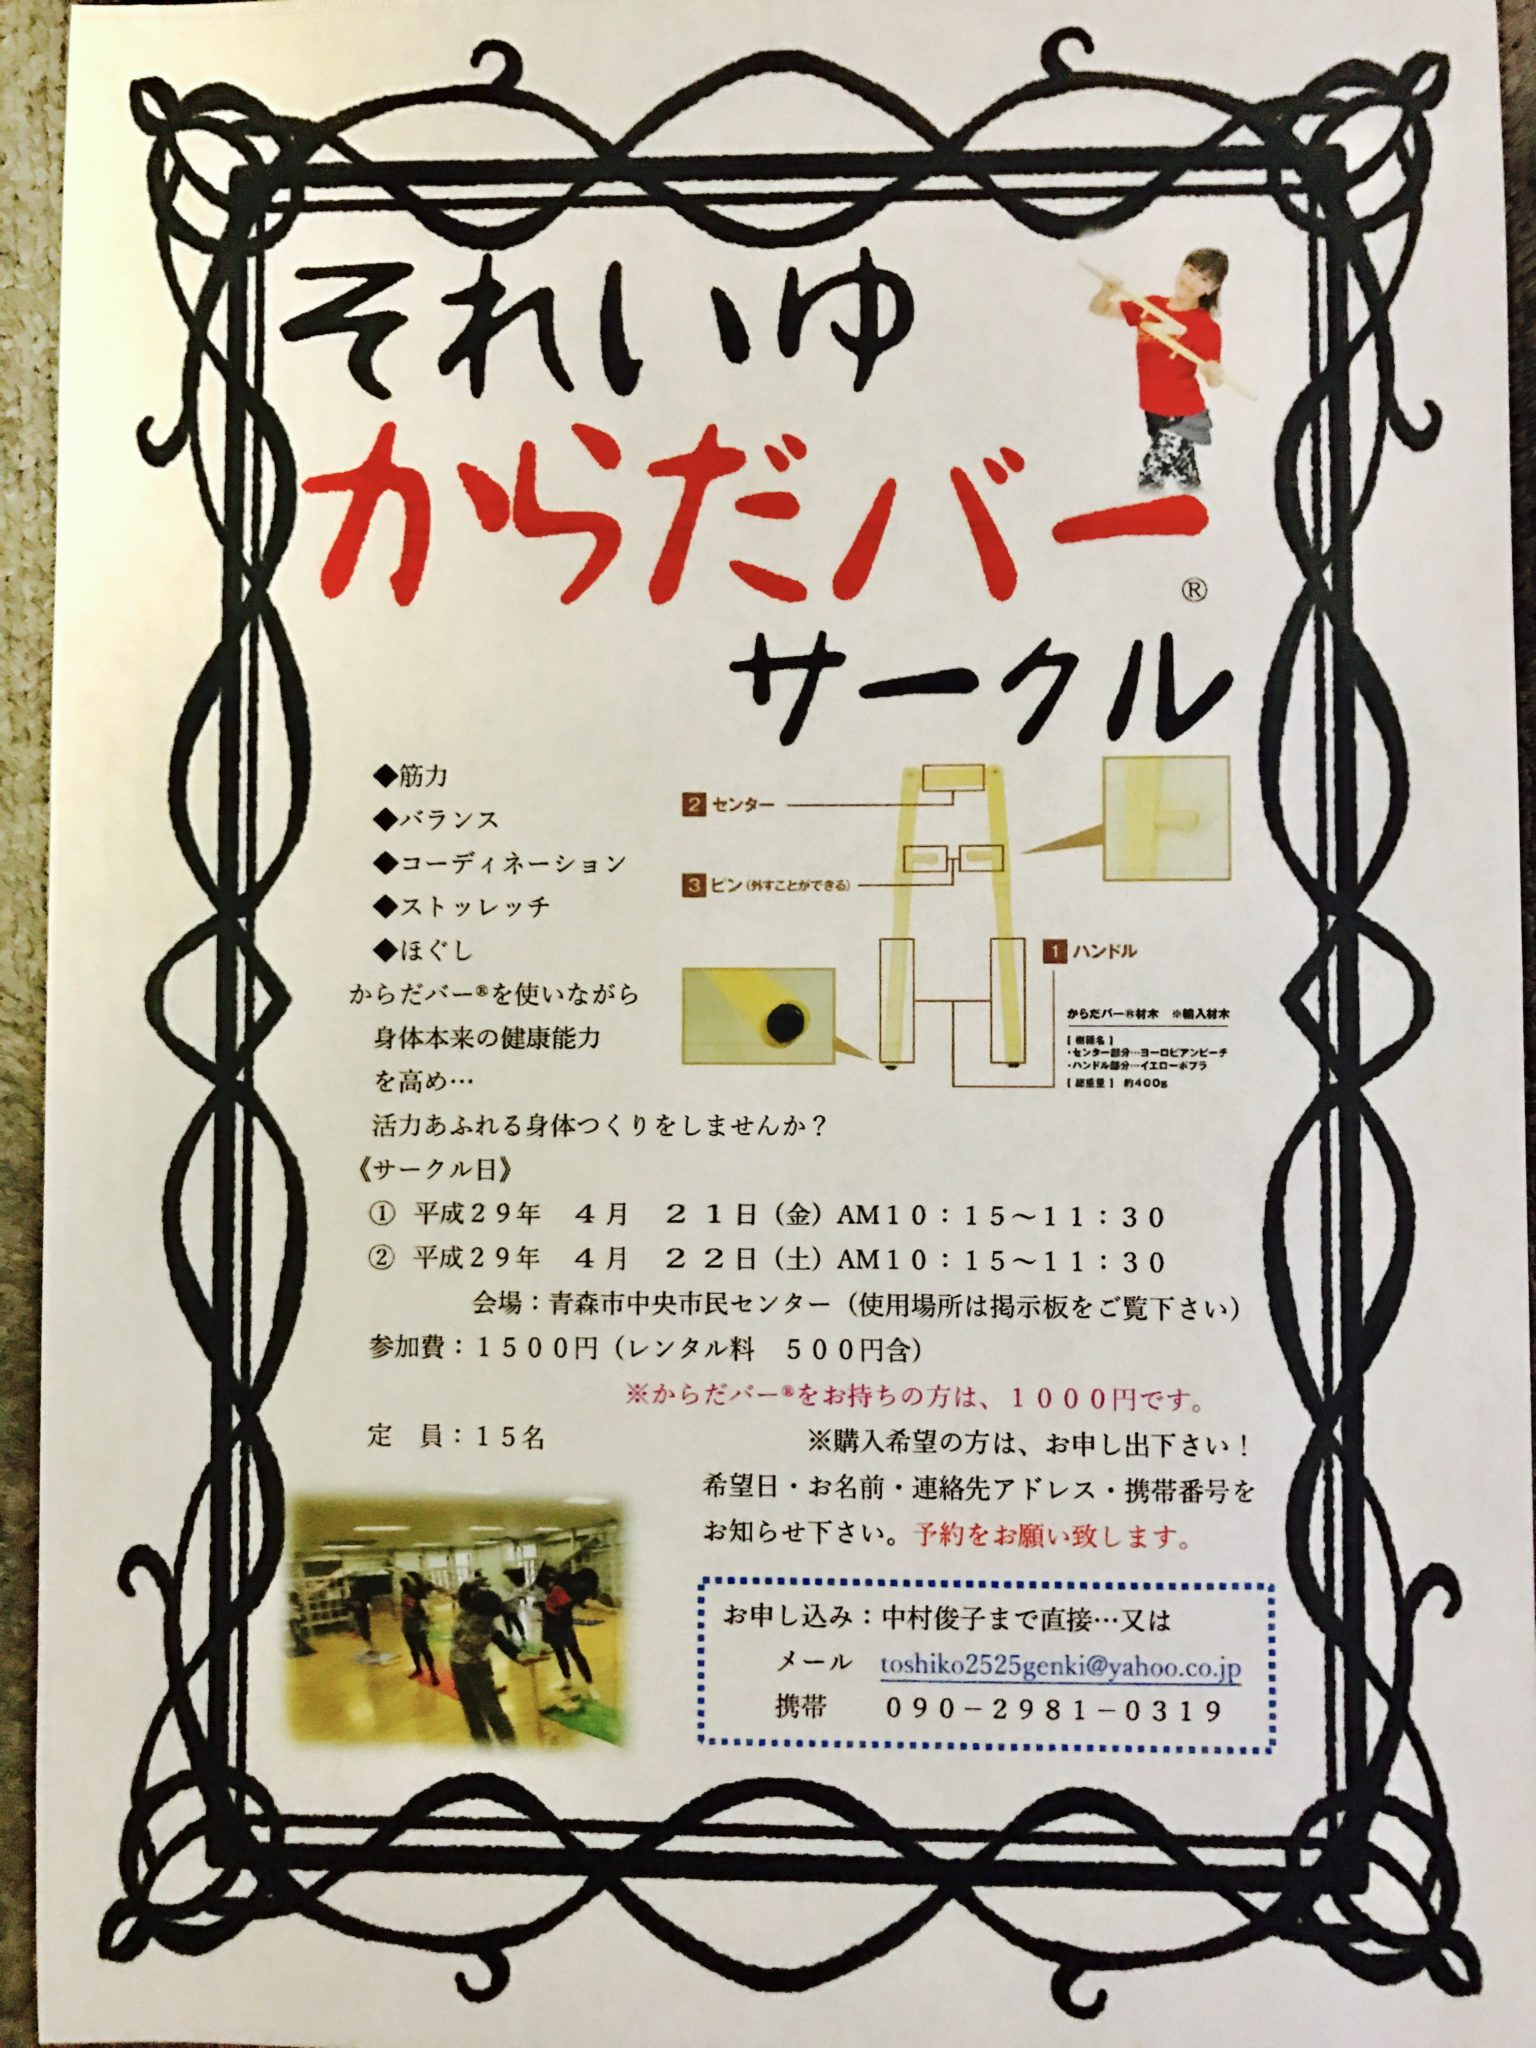 それいゆ
からだバー®
サークル
◆筋力
◆バランス
◆コーディネーション
◆ストッレッチ
◆ほぐし
2 センター
3 ピン(外すことができる)
1 ハンドル
からだバー®材木　※輸入材木
【樹種名】
・センター部分…ヨーロピアンビーチ
・ハンドル部分…イエローポプラ
【総重量】 約400g
からだバー®を使いながら
身体本来の健康能力
を高め…
活力あふれる身体つくりをしませんか？
《サークル日》
① 平成２９年　４月　２１日（金）AM１０：１５～１１：３０
② 平成２９年　４月　２２日（土）AM１０：１５～１１：３０
会場：青森市中央市民センター（使用場所は掲示板をご覧下さい）
参加費：１５００円（レンタル料　５００円含）
※からだバー®をお持ちの方は、１０００円です。
定　員：１５名
※購入希望の方は、お申し出下さい！
希望日・お名前・連絡先アドレス・携帯番号を
お知らせ下さい。予約をお願い致します。
お申し込み：中村俊子まで直接…又は
メール　toshiko2525genki@yahoo.co.jp
携帯　０９０－２９８１－０３１９